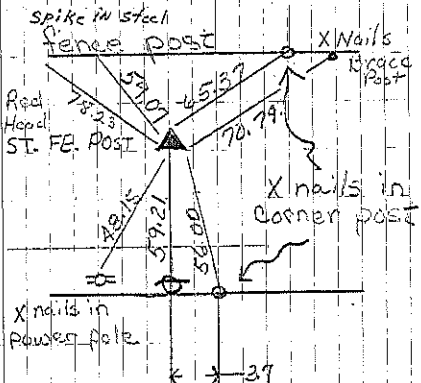 Spike in steel
fence post
X Nails
Brace
Post
Red
Head
ST. FE. POST
78.23
65.37
70.79
X nails in
Corner post
48.15
59.21
56.00
X nails in
power pole
37